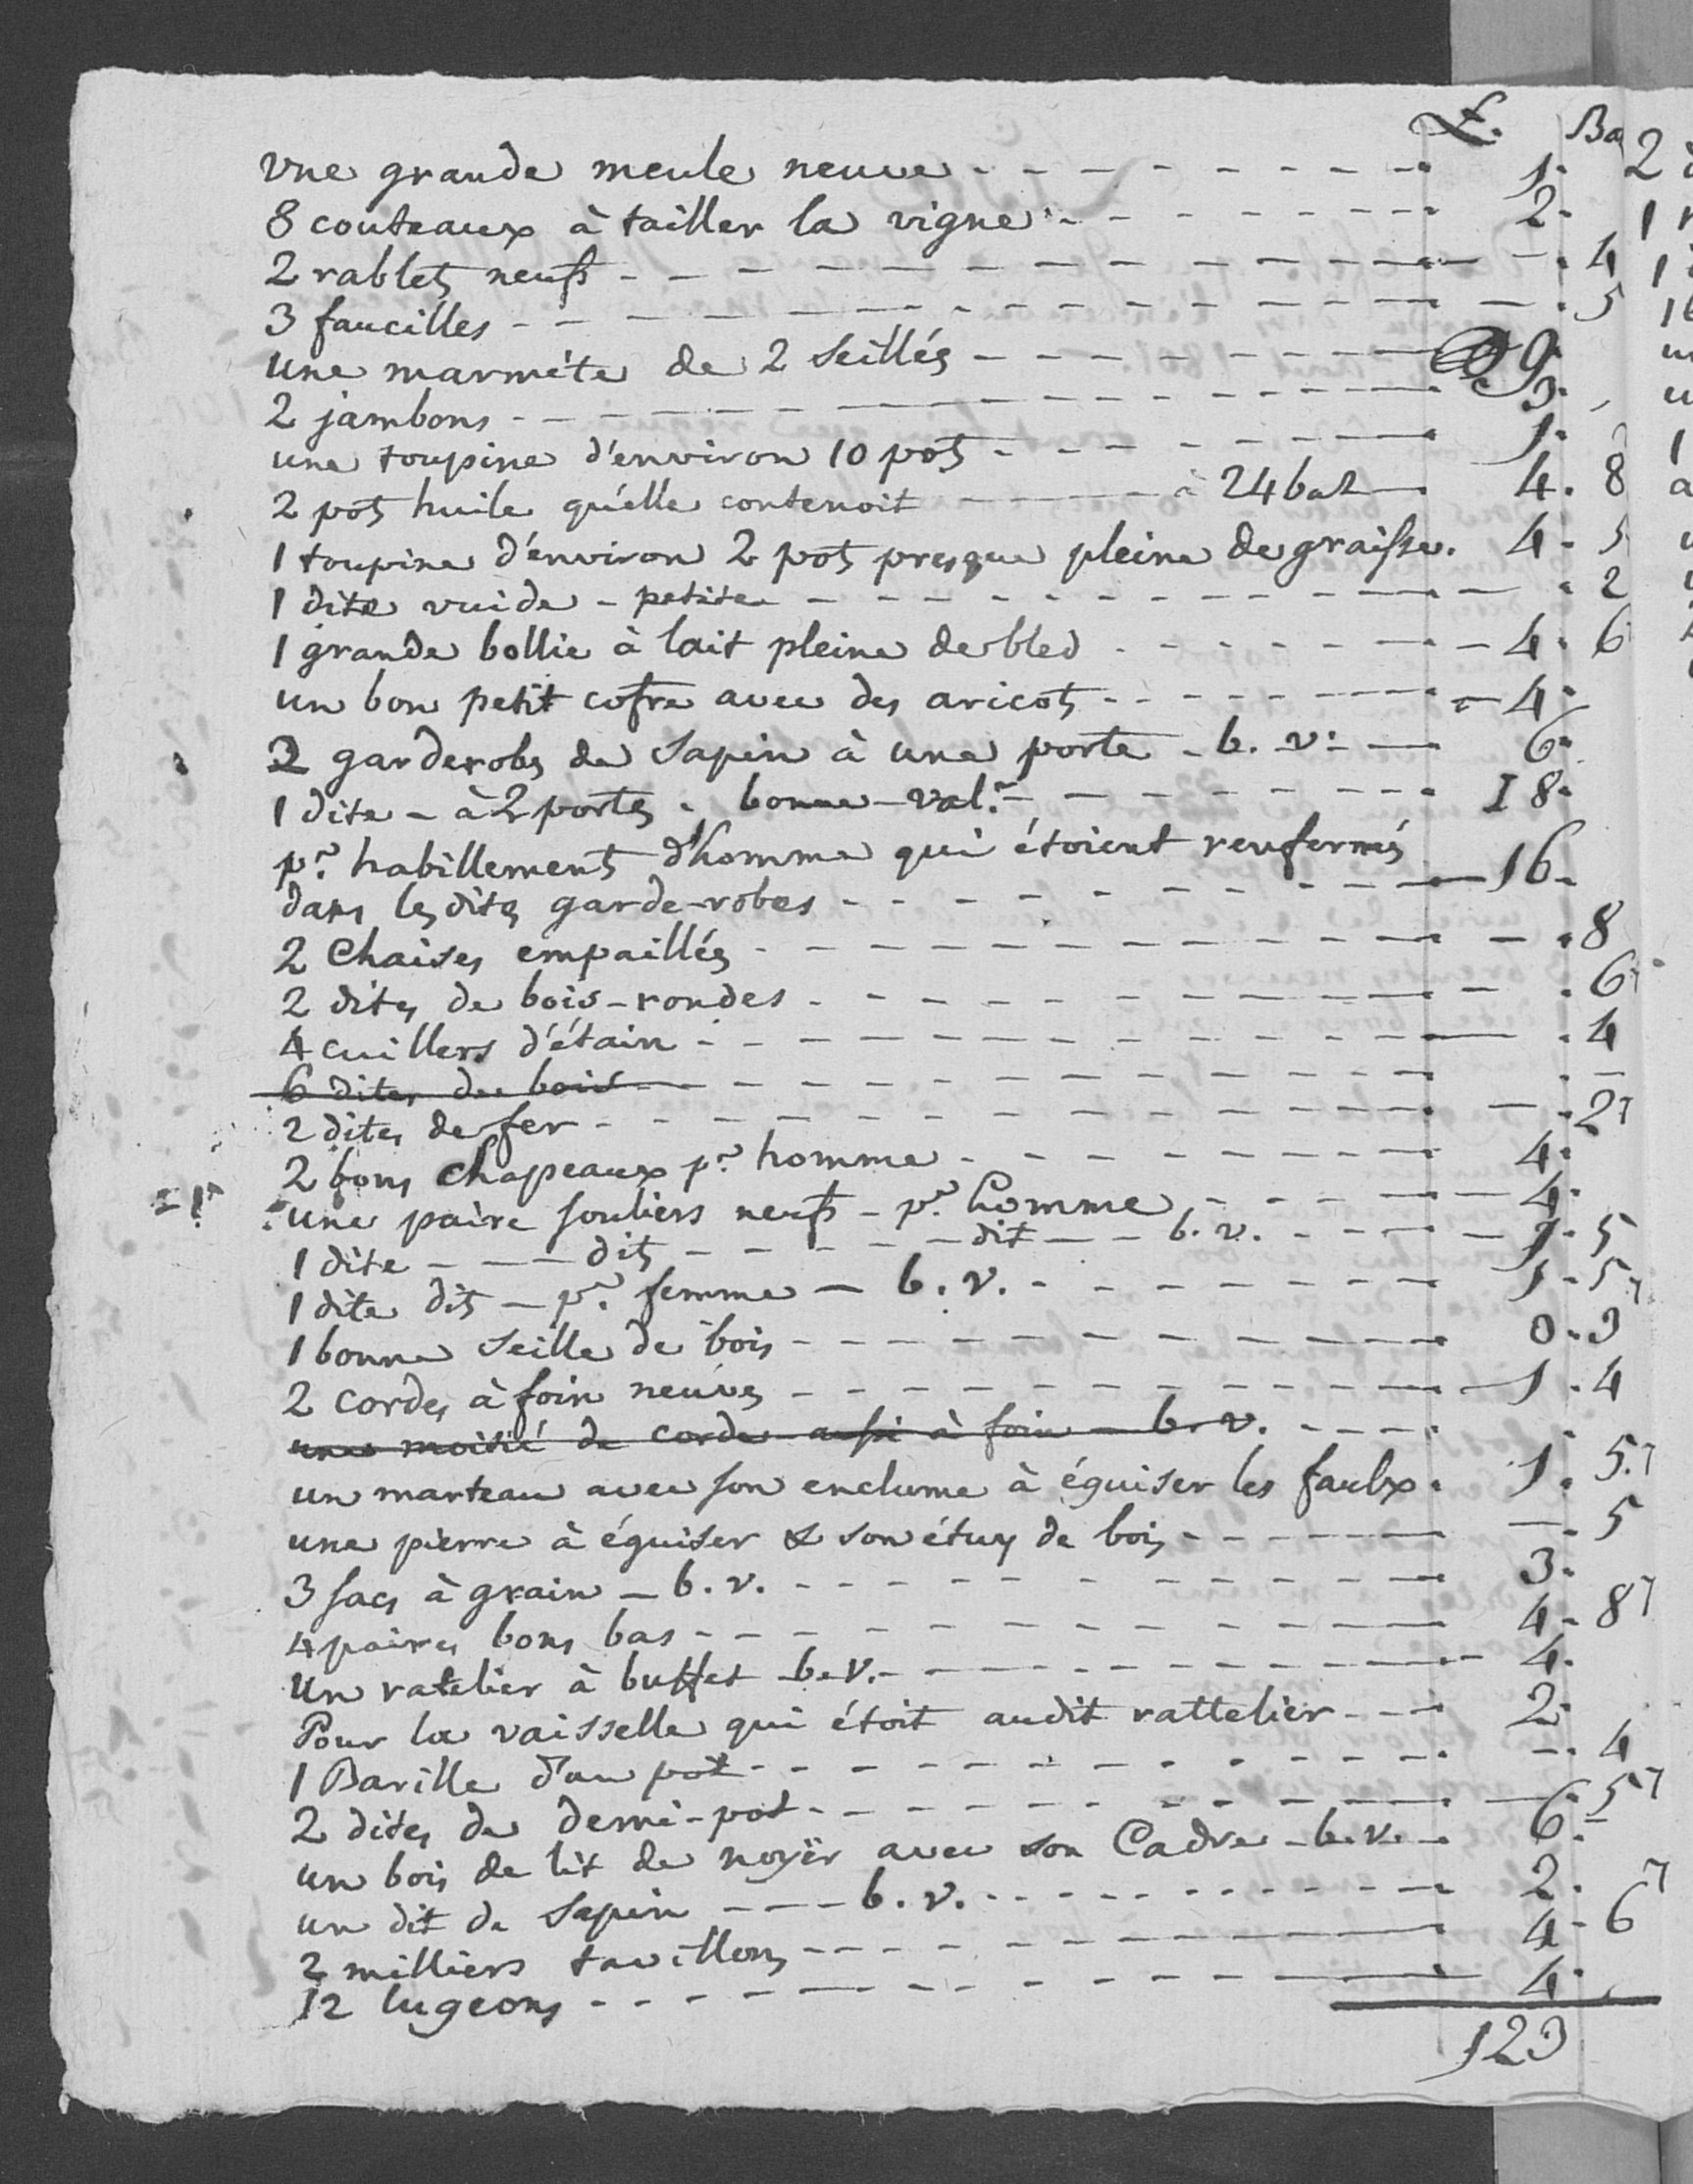 £. Ba
vne grande meule neuve - - - - 1.
8 couteaux à tailler la vigne - - - - 2.
2 rablets neufs - - - - — . 4
3 faucilles - - - - — . 5
une marméte de 2 seillés - - - - 9.
2 jambons - - - - 3.
une toupine d'environ 10 pots - - - - 1.
2 pots huile qu'elle contenoit — à 24 batz 4. 8
1 toupine d'environ 2 pots presque pleine de graisse. 4. 5
1 dite vuide - petite - - - - — . 2
1 grande bollie à lait pleine de bled - - - - 4. 6
un bon petit cofre avec des aricots - - - - 4.
2 garderobes de sapin à une porte - b. v. — 6.
1 dite - à 2 portes. bonne - val.r - - - - 18.
pr. habillements d'homme qui étoient renfermés
dans les dites garde-robes - - - - 16.
2 Chaises empaillés - - - - — . 8
2 dites de bois - rondes - - - - — . 6
4 cuillers d'étain - - - - — . 4
6 dites de bois - - - - . —
2 dites de fer - - - - — . 2
2 bons chapeaux pr. homme - - - - 4.
une paire souliers neufs - pr. homme - - - - 4.
1 dite - - - dits - - - - dit - - b. v. - - - - 1. 5
1 dite dits — pr. femme — b. v. - - - - 1. 5
1 bonne seille de bois - - - - 0. 3
2 cordes à foin neuves - - - - 1. 4
une moitié de corde aussi à foin — b. v. - - - -
un marteau avec son enclume à éguiser les faulx. 1. 5.
une pierre à éguiser & son étuy de bois - - - - — . 5
3 sacs à grain — b. v. - - - - 3.
4 paires bons bas - - - - 4. 8
Un ratelier à buffet b. v. - - - - 4.
Pour la vaisselle qui étoit audit rattelier - - - 2.
1 Barille d'un pot - - - - — . 4
2 dites de demi-pot - - - - — . 5
un bois de lit de noyër avec son Cadre - b. v. - 6. —
un dit de sapin - - - b. v. - - - - 2.
2 milliers tavillons - - - - 4. 6
12 lugeons - - - - 4.
123